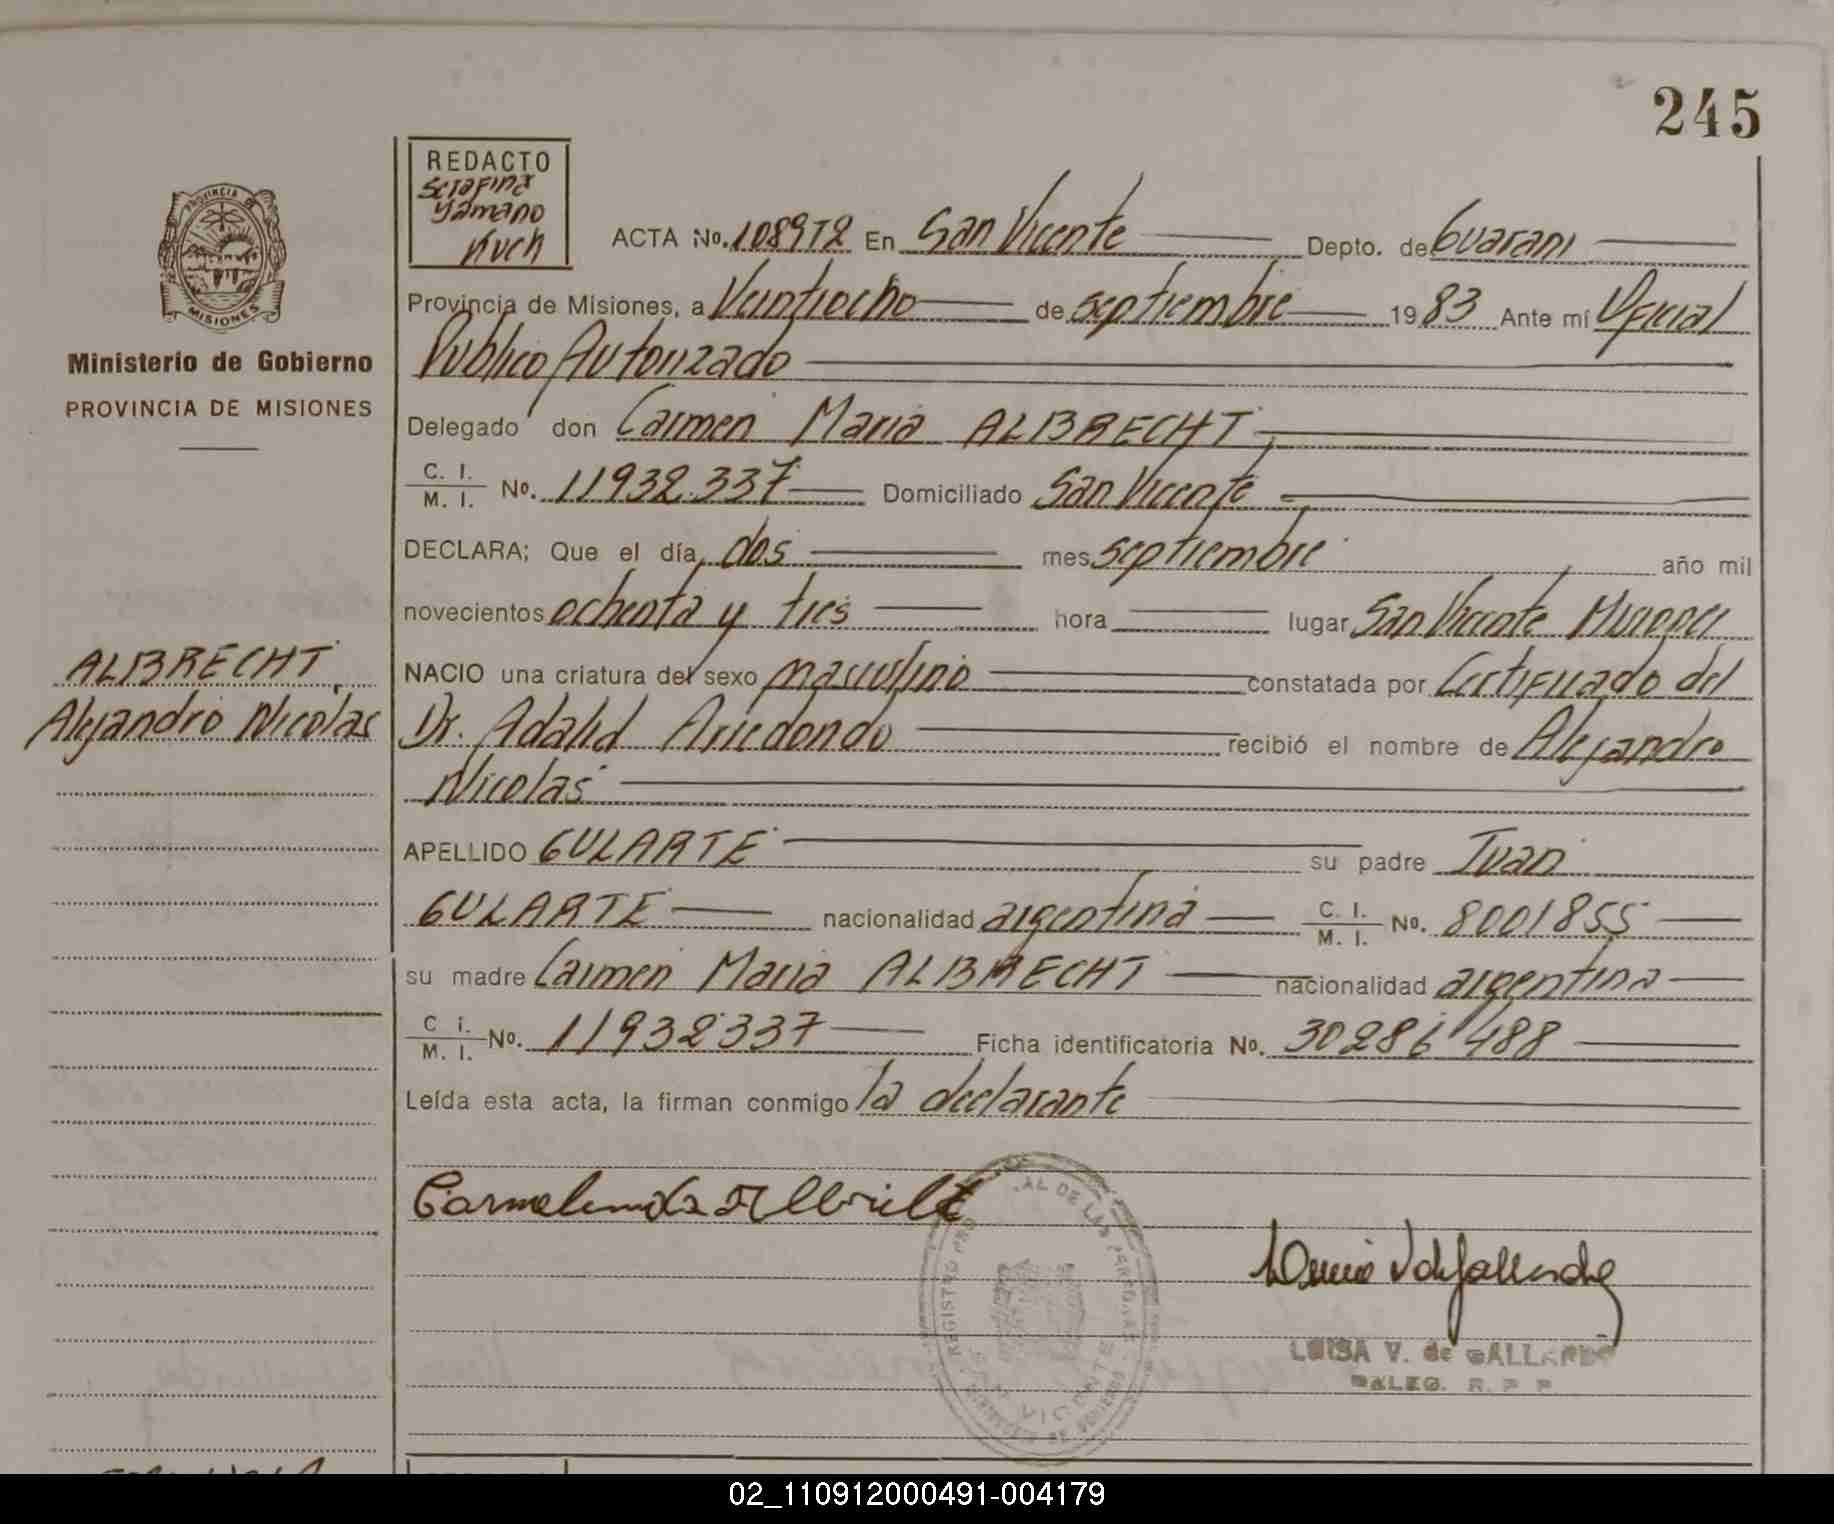 245
REDACTO
Serafina
Yamano
Kuch
PROVINCIA DE
MISIONES
Ministerio de Gobierno
PROVINCIA DE MISIONES
ACTA No. 1089T2 En San Vicente Depto. de Guarani
Provincia de Misiones, a Veintiocho de septiembre 1983 Ante mí Oficial
Publico Autorizado
Delegado don Carmen Maria ALBRECHT,
C. I.
M. I. No. 11932.337 Domiciliado San Vicente
DECLARA; Que el día, dos mes septiembre año mil
novecientos ochenta y tres hora lugar San Vicente Misiones
ALBRECHT,
Alejandro Nicolas
NACIO una criatura del sexo masculino constatada por Certificado del
Dr. Adalid Arredondo recibió el nombre de Alejandro
Nicolas
APELLIDO GULARTE su padre Juan
GULARTE nacionalidad argentina C. I. M. I. No. 8001855
su madre Carmen Maria ALBRECHT nacionalidad argentina
C i. M. I. No. 11932337 Ficha identificatoria No. 30286488
Leída esta acta, la firman conmigo la declarante
REGISTRO DE LAS
VICENTE
LUISA V. de GALLARDO
DELEG. R. P. P.
02_110912000491-004179